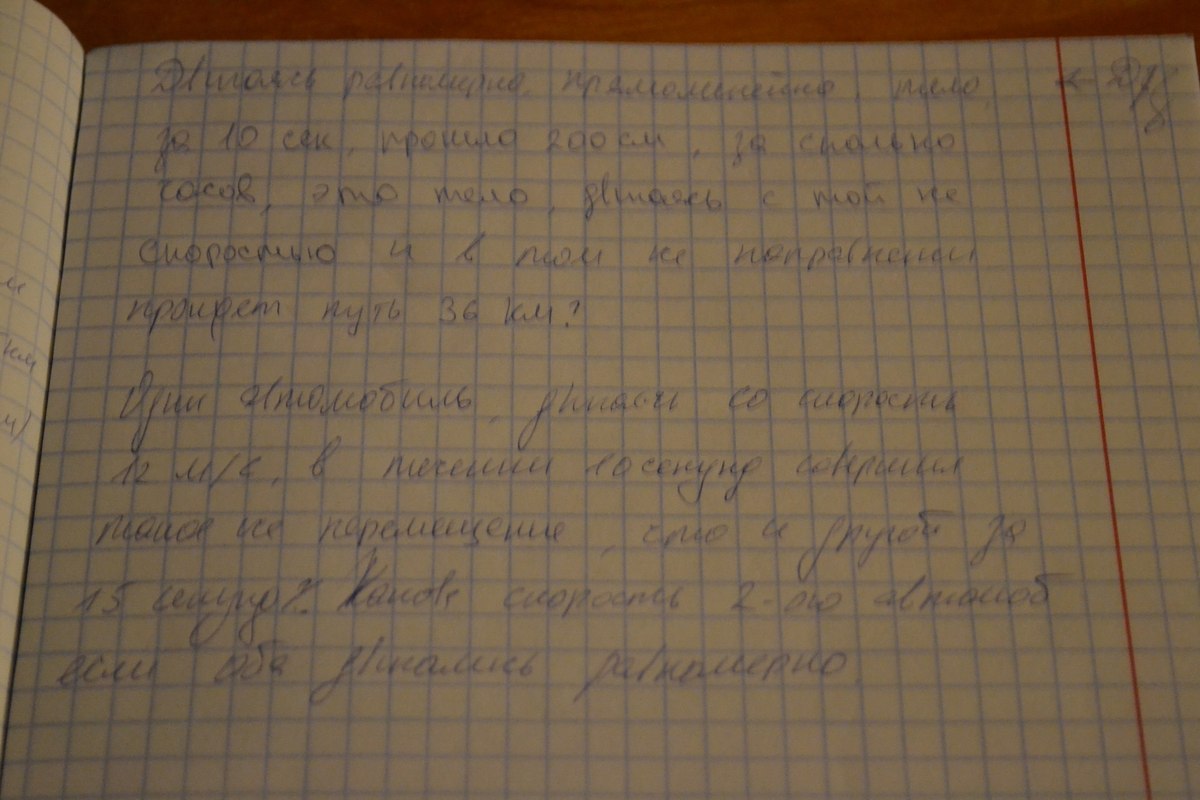 Двигаясь равномерно, прямолинейно, тело, ← Д/З
за 10 сек, прошло 200 см, за сколько
часов, это тело, двигаясь с той же
скоростью и в том же направлении
пройдет путь 36 км?
Один автомобиль, двигаясь со скорость
12 м/с, в течении 10 секунд совершил
такое же перемещение, что и другой за
15 секунд. Какова скорость 2-ого автомоб
если оба двигались равномерно.
м
км
м)